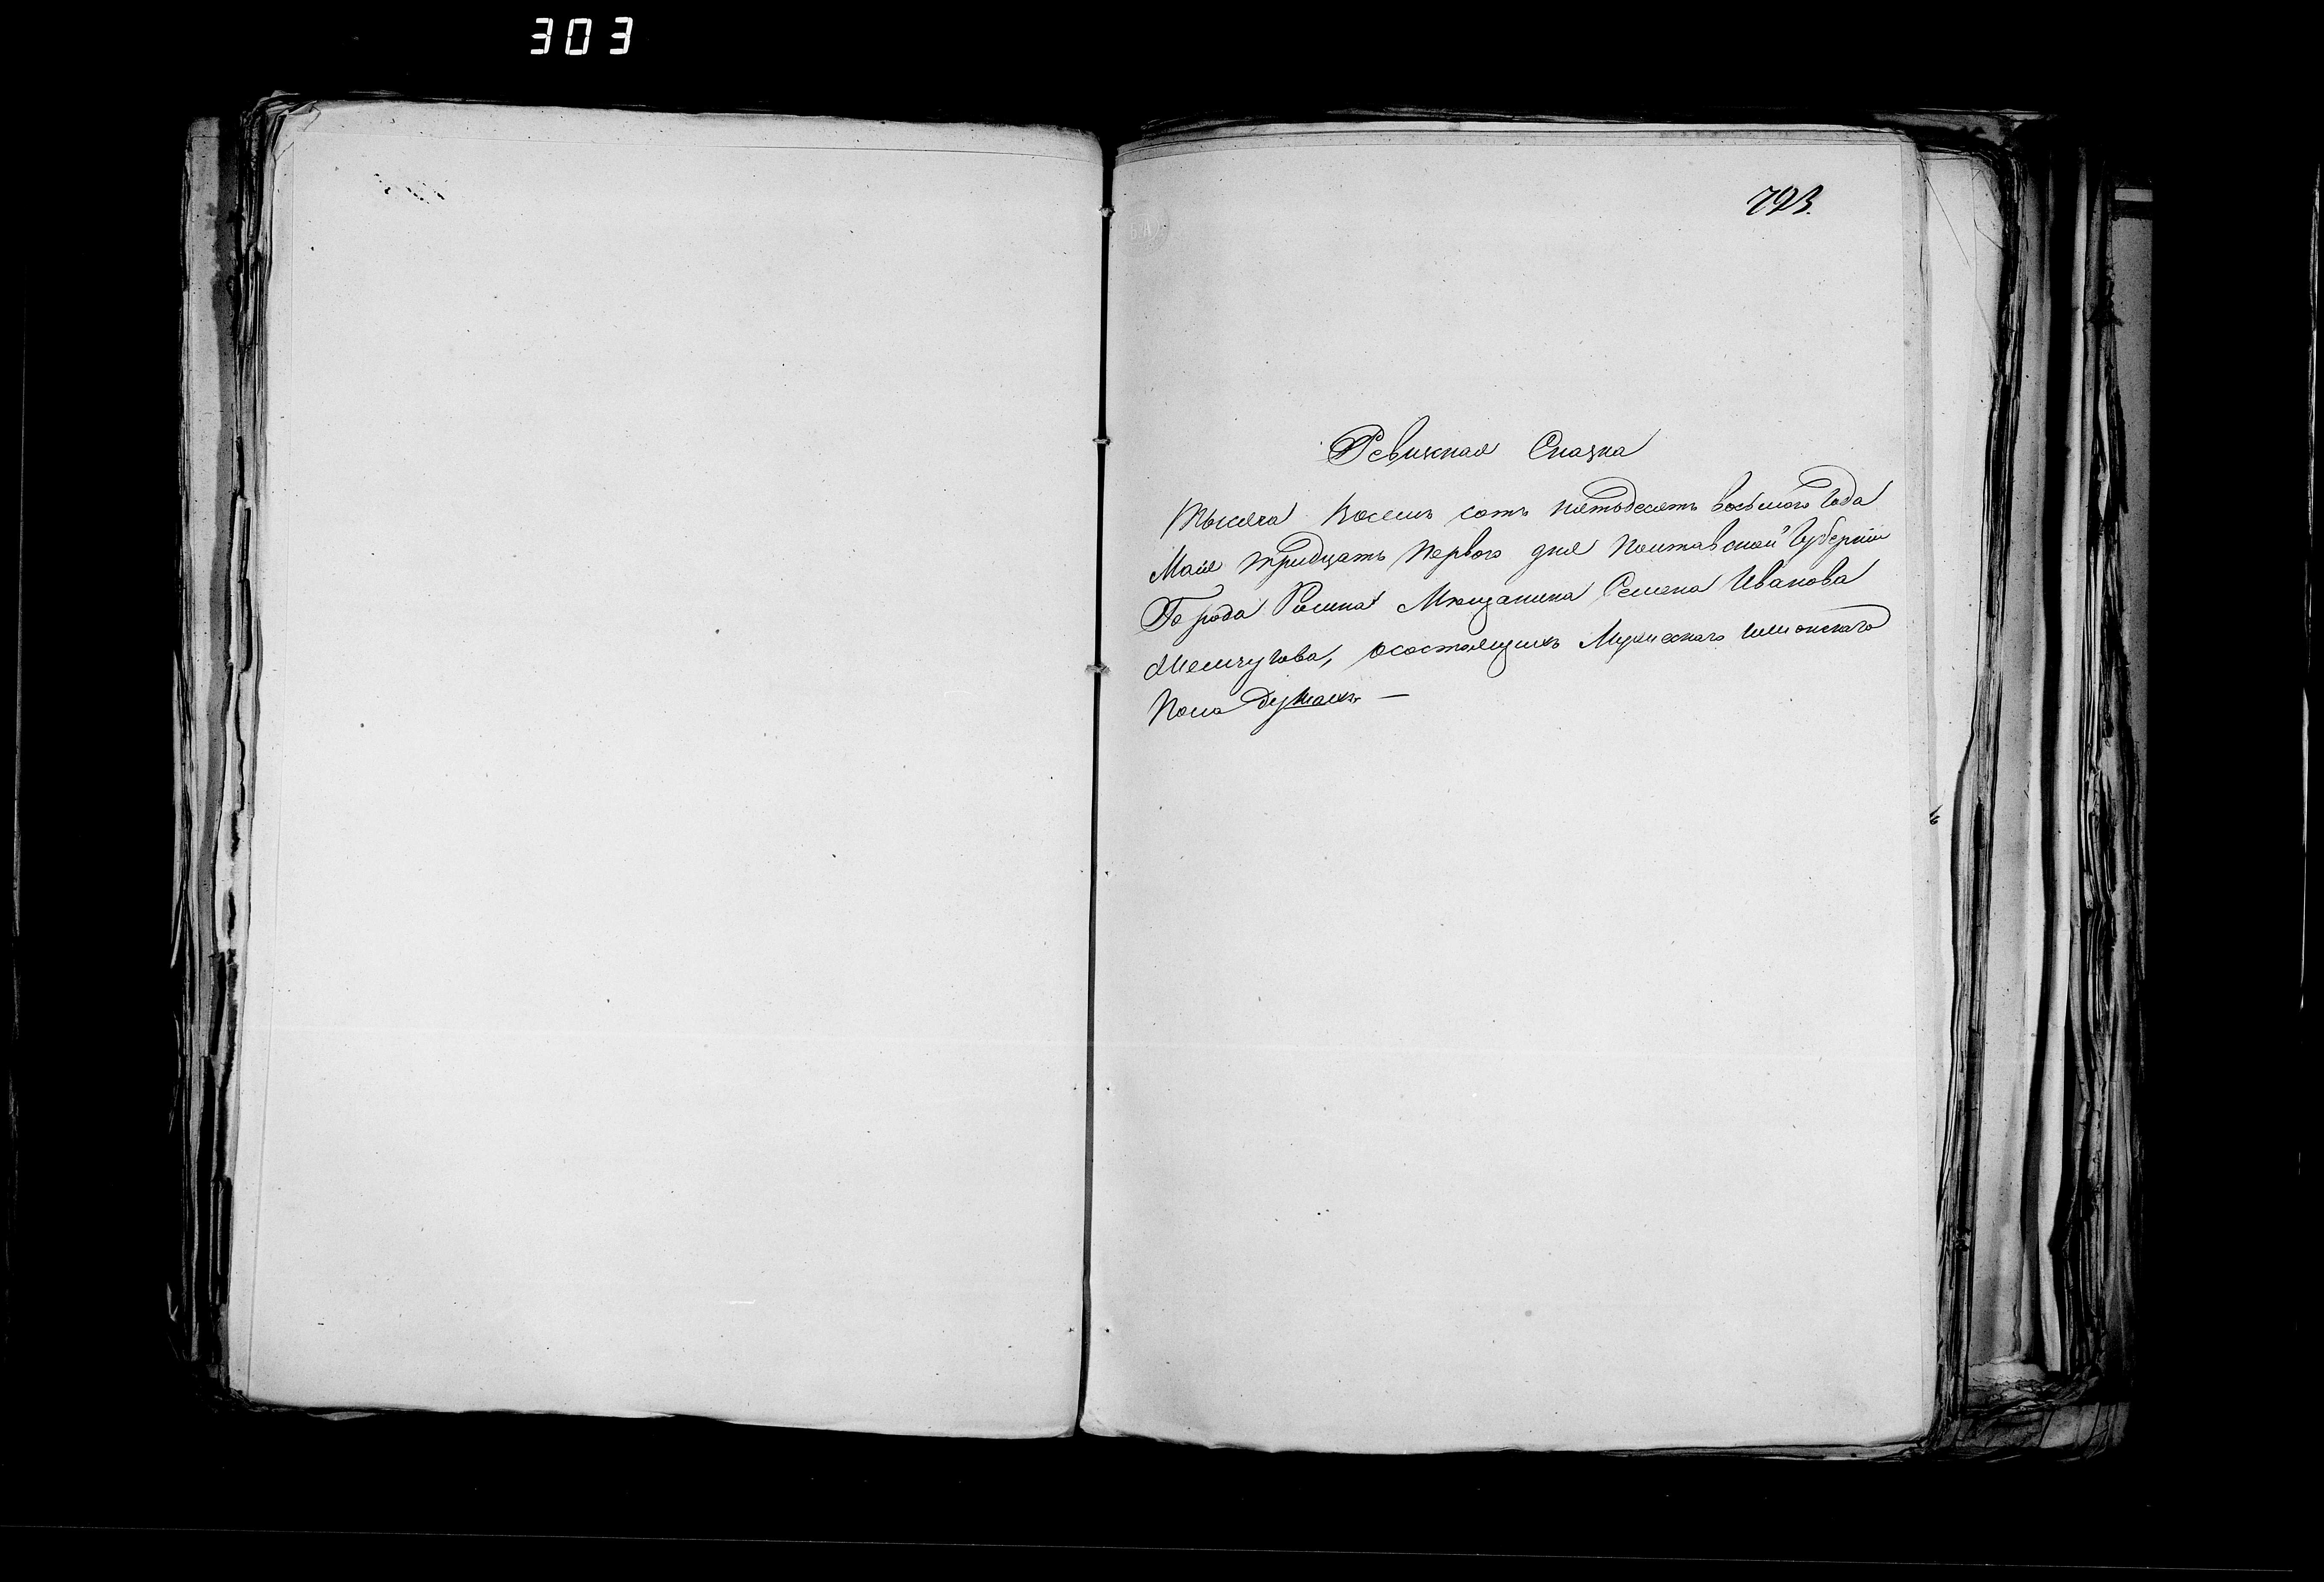 303
793.
Ревизская Сказка
Тысяча восемь сотъ пятьдесятъ восьмого Года
Мая тридцать первого дня Полтавской Губерніи
Города Ромна Мѣщанина Семена Иванова
осостоящихъ Мужескаго и женскаго
Пола душахъ —